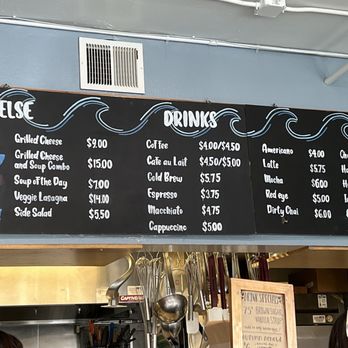 ELSE
Grilled Cheese $9.00
Grilled Cheese
and Soup Combo $15.00
Soup of the Day $7.00
Veggie Lasagna $14.00
Side Salad $5.50
DRINKS
Coffee $4.00/$4.50
Cafe au Lait $4.50/$5.00
Cold Brew $5.75
Espresso $3.75
Macchiato $4.75
Cappuccino $5.00
Americano $4.00
Latte $5.75
Mocha $6.00
Red eye $5.00
Dirty Chai $6.00
DRINK SPECIALS
BROWN SUGAR